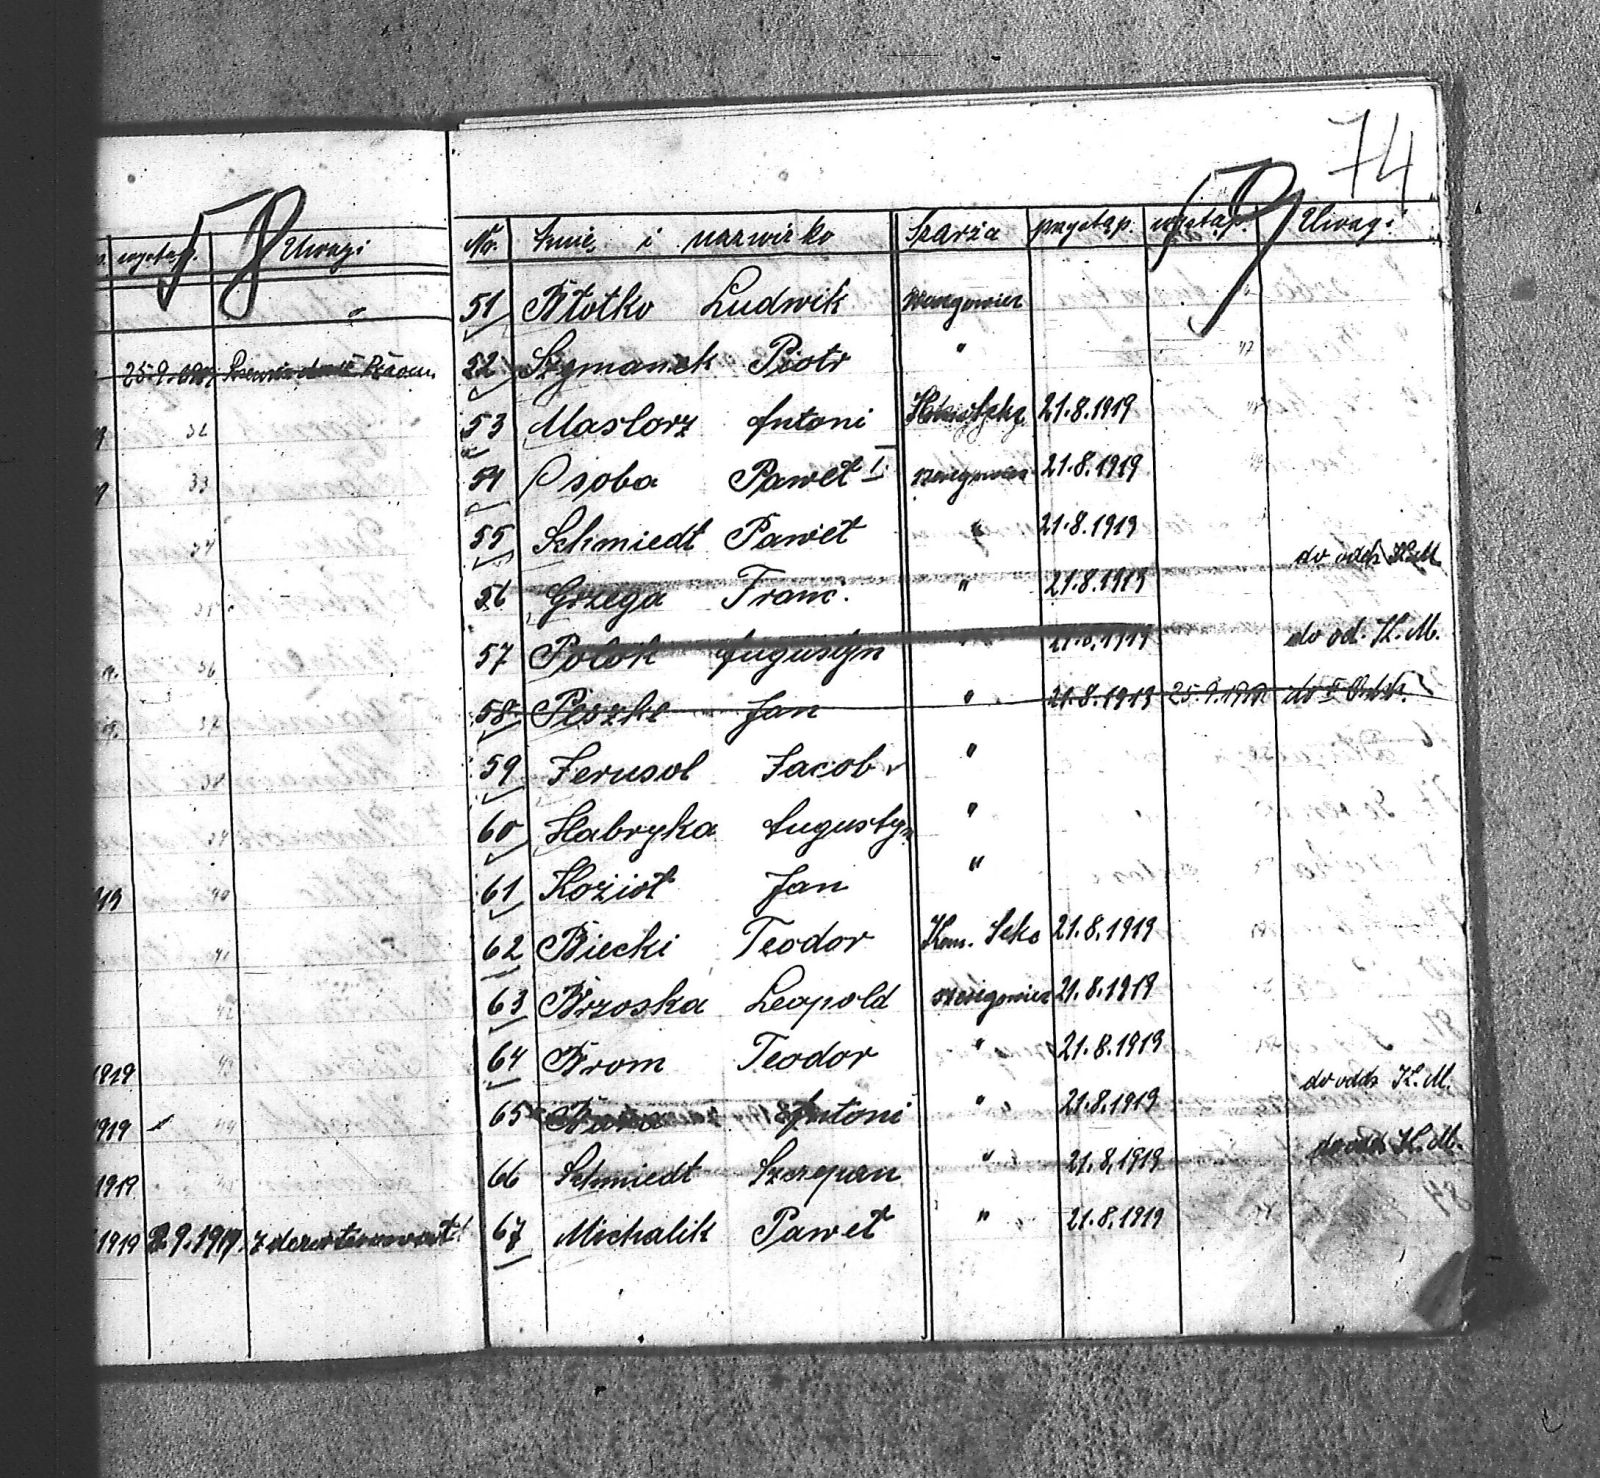 58
wystąp. Uwagi
25.9.1919
32
33
34
35
36
37
38
39
1919 40
41
42
1919 43
1919 44
1919
1919 2.9.1919 zdezerterował!
74
59
No. Imię i nazwisko Szarża przystąp. wystąp. Uwagi
51 Błotko Ludwik szeregowiec
52 Szymanek Piotr "
53 Maslorz Antoni 21.8.1919
54 Osoba Paweł I. szeregowiec 21.8.1919
55 Schmiedt Paweł " 21.8.1919
56 Grzega Franc. " 21.8.1919 do oddz. K.M.
57 Polok Augustyn " 21.8.1919 do od. K.M.
58 Peszke Jan " 21.8.1919 25.9.1919 do II
59 Ferusol Jacob "
60 Habryka Augustyn "
61 Kozioł Jan "
62 Biecki Teodor Kom. Sekc 21.8.1919
63 Brzoska Leopold szeregowiec 21.8.1919
64 Brom Teodor " 21.8.1919
65 Antoni " 21.8.1919 do oddz K.M.
66 Schmiedt Szczepan " 21.8.1919 do oddz K.M.
67 Michalik Paweł " 21.8.1919